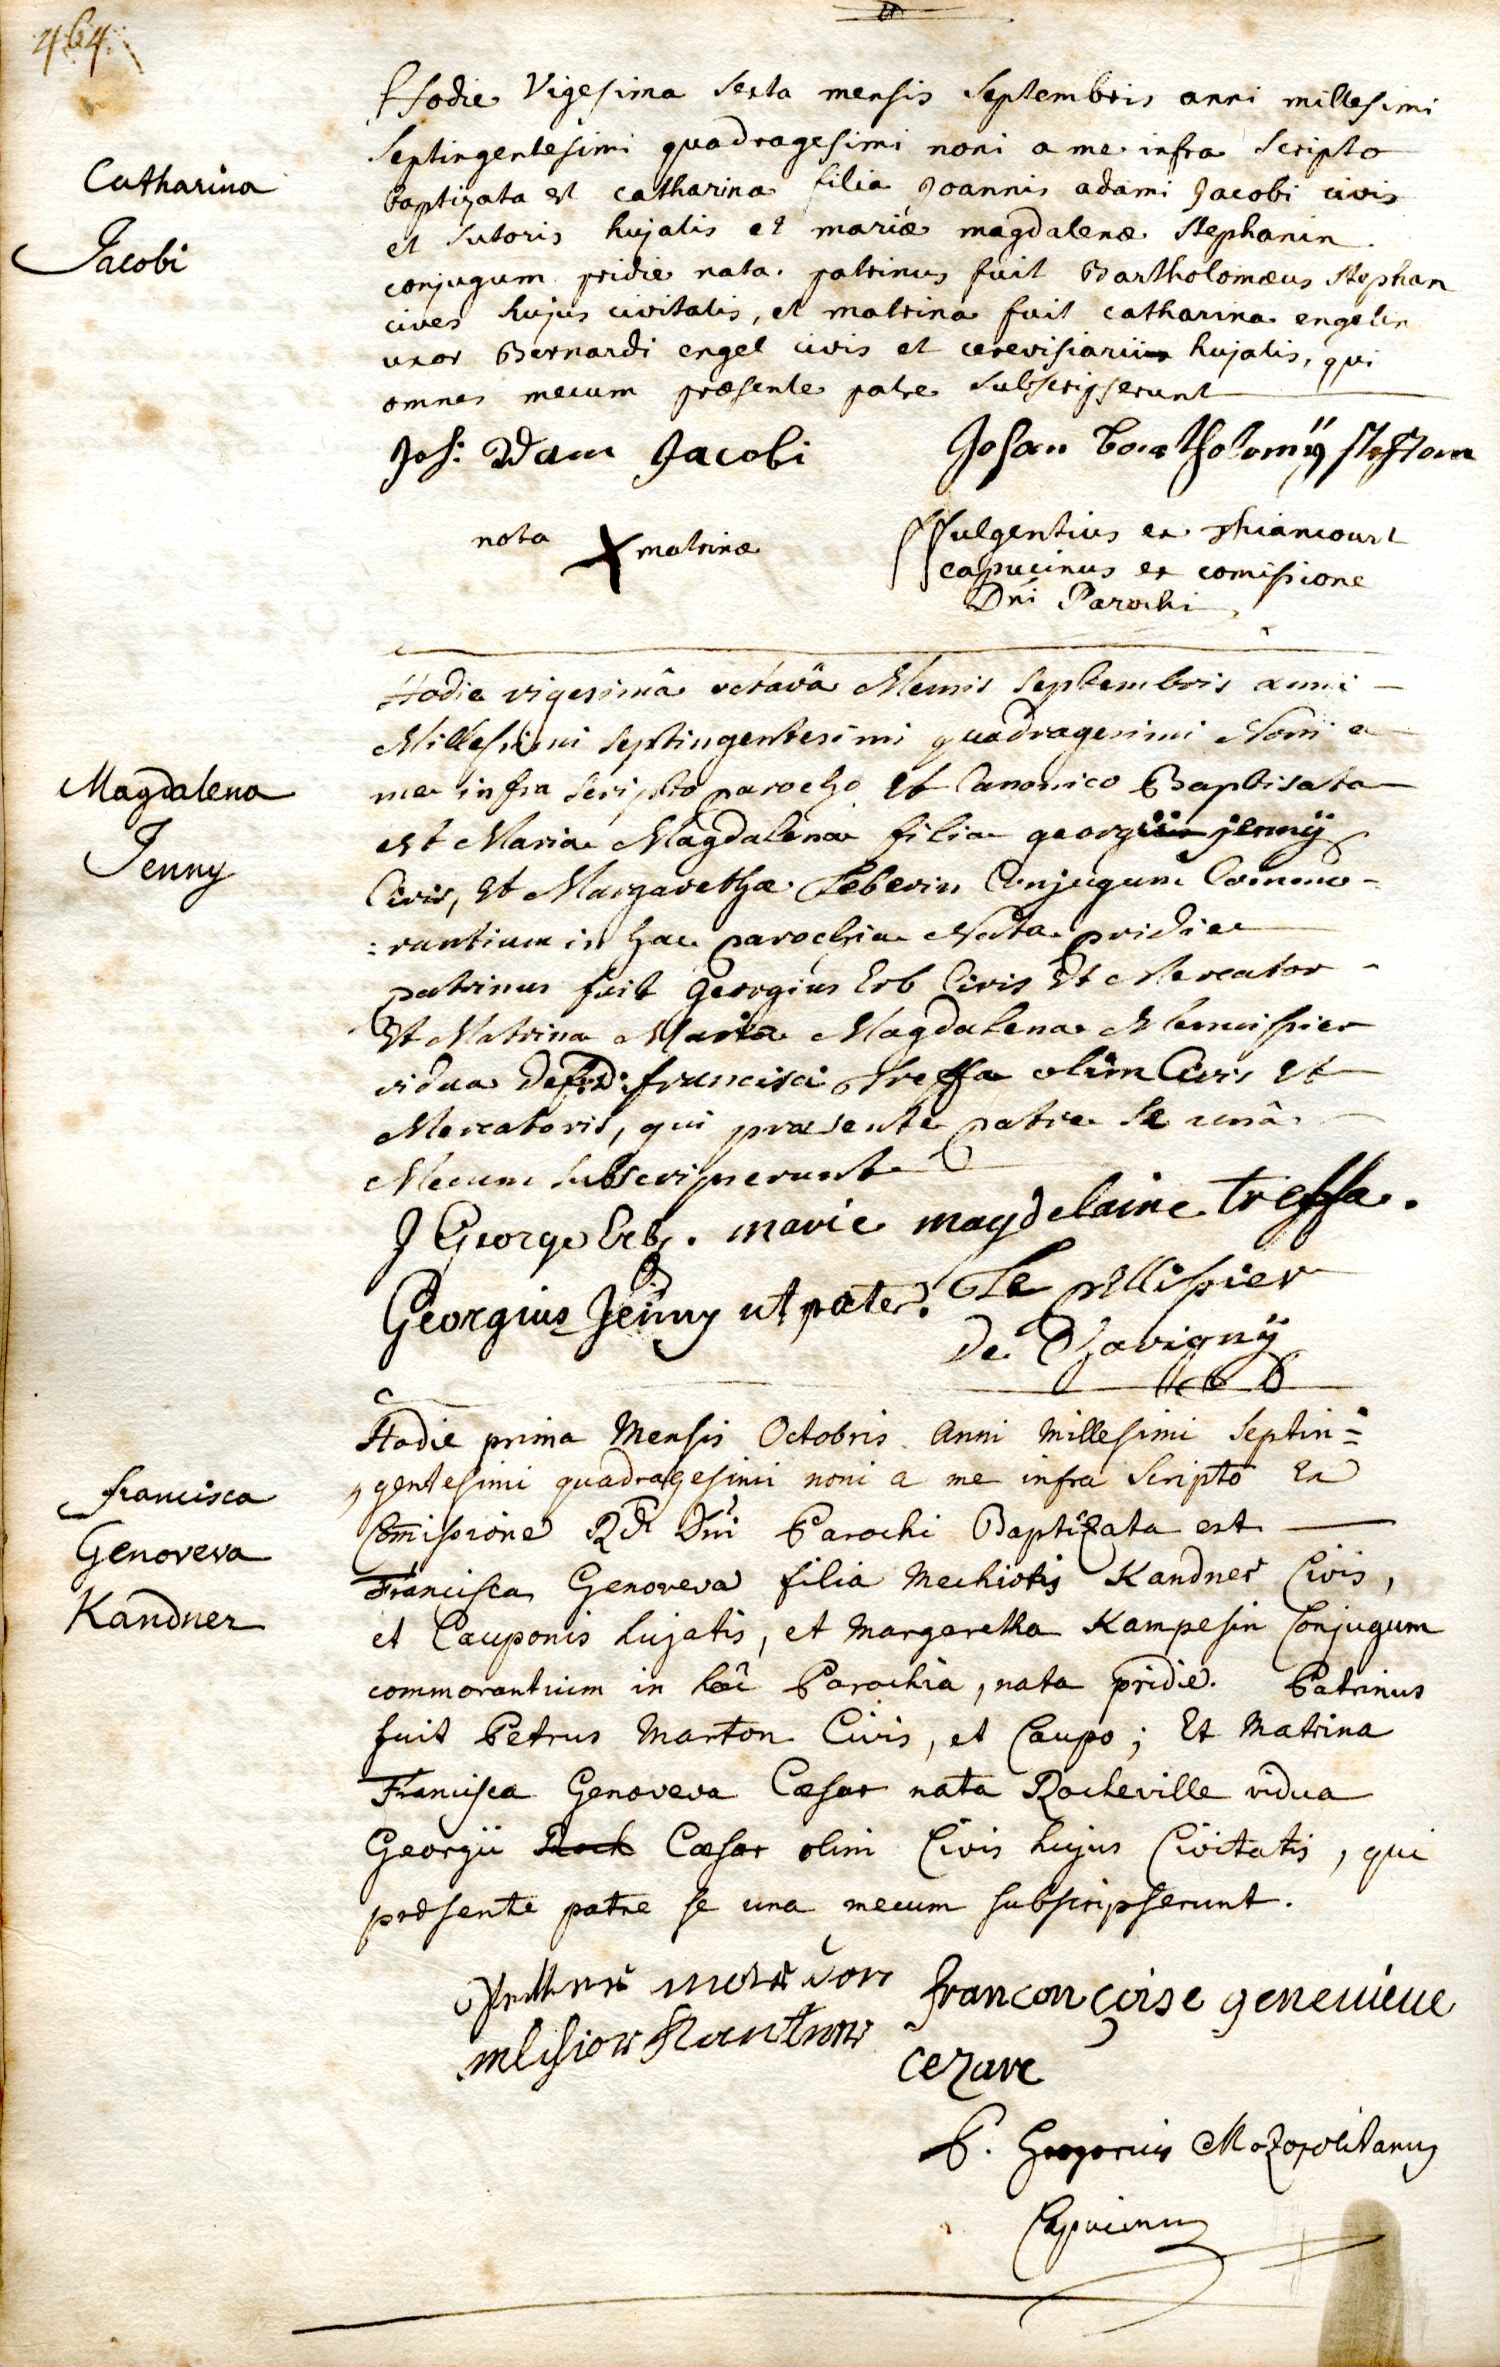 464.
Catharina
Jacobi
Hodie Vigesima sexta mensis septembris anni millesimi
septingentesimi quadragesimi noni a me infra scripto
baptizata est catharina filia joannis adami jacobi civis
et sutoris hujatis et mariæ magdalenæ stephanin
conjugum pridie nata. patrinus fuit Bartholomæus stephan
cives hujus civitatis, et matrina fuit catharina engelin
uxor Bernardi engel civis et cerevisiarii hujatis, qui
omnes mecum præsente patre subscripserunt
Joh: Adam Jacobi
Johan bartholomÿ
nota X matrinæ
fulgentius ex
capucinus ex comissione
Dni Parochi
Magdalena
Jenny
Hodie vigesimâ octavâ Mensis Septembris anni
Millesimi septingentesimi quadragesimi Noni a
me infra scripto parocho Et Canonico Baptisata
est Maria Magdalena filia georgii jennÿ
Civis, Et Margarethæ Leberin Conjugum Commo-
:rantium in hac parochia Nata pridie
patrinus fuit Georgius Erb Civis Et Mercator
Et Matrina Maria Magdalena
vidua francisci treffa olim Civis Et
Mercatoris, qui præsente patre se unâ
Mecum subscripserunt
J George Erb. marie magdelaine treffa.
Georgius Jenny ut pater. Le pellissier
de Chavignÿ
francisca
Genoveva
Kandner
Hodie prima Mensis Octobris Anni Millesimi Septin=
gentesimi quadragesimi noni a me infra scripto Ex
Comissione Rdi Dni Parochi Baptizata est
Francisca Genoveva filia Mechioris Kandner Civis,
et Cauponis hujatis, et Margaretha Kampesin Conjugum
commorantium in hac Parochia, nata pridie. Patrinus
fuit Petrus Marton Civis, et Caupo; Et Matrina
Francisca Genoveva Cæsar nata Rocheville vidua
Georgii Cæsar olim Civis hujus Civitatis, qui
præsente patre se una mecum subscripserunt.
francon çoise genevieve
cezare
P. Gregorius Mozopolitanus
Capucinus